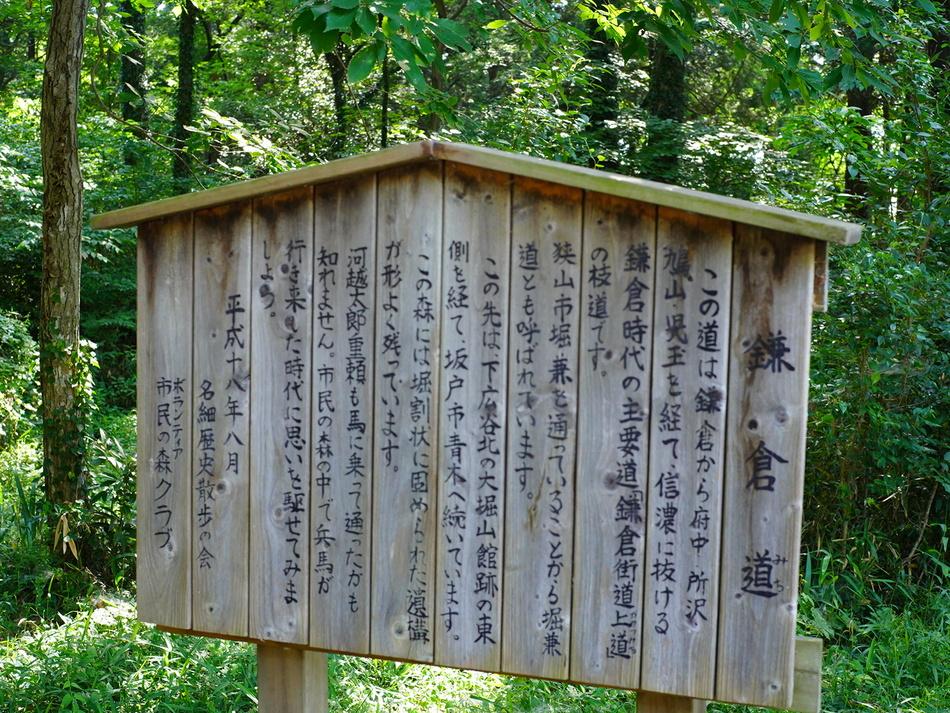 鎌倉道
みち
この道は鎌倉から府中 所沢
鳩山 児玉を経て、信濃に抜ける
鎌倉時代の主要道「鎌倉街道上道」
かみつみち
の枝道です。
狭山市堀兼を通っていることから堀兼
道とも呼ばれています。
この先は、下広谷北の大堀山館跡の東
側を経て、坂戸市青木へ続いています。
この森には堀割状に固められた遺構
が形よく残っています。
河越太郎重頼も馬に乗って通ったかも
知れません。市民の森の中で兵馬が
行き来した時代に思いを馳せてみま
しょう。
平成十八年八月
名細歴史散歩の会
ボランティア
市民の森クラブ